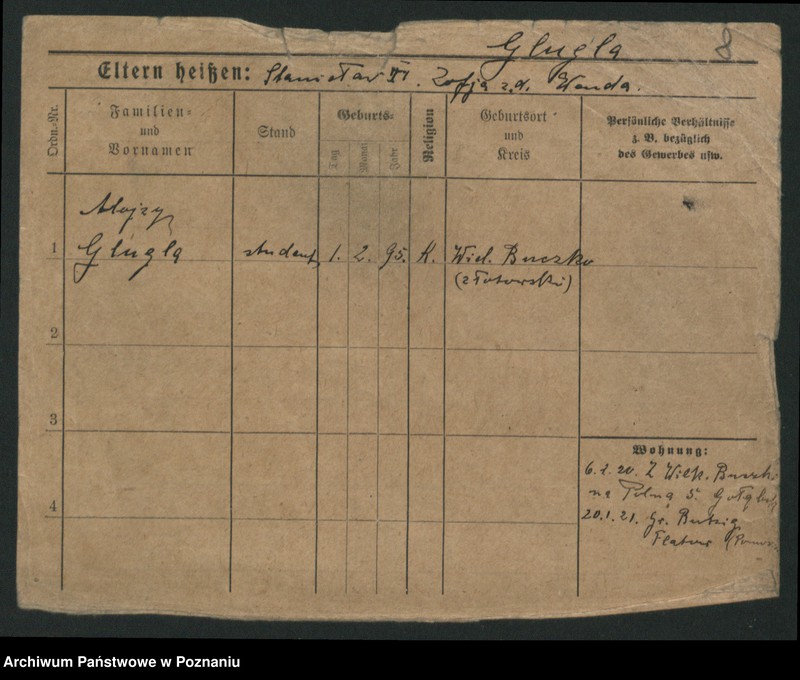 Glugla
8
Eltern heißen: Stanisław Zofja z.d. Wenda.
Ordn.-Nr.
Familien- und Vornamen
Stand
Geburts-
Tag
Monat
Jahr
Religion
Geburtsort und Kreis
Persönliche Verhältnisse
z. B. bezüglich
des Gewerbes usw.
Alojzy
1 Glugla student 1. 2. 95. K. Wiel. Buczko
(złotowski)
2
3
4
Wohnung:
6.1.20. Z Wielk. Buczk.
na Polną 5.
20.1.21. Gr. Butzig
Flatow (Pomor.
Archiwum Państwowe w Poznaniu